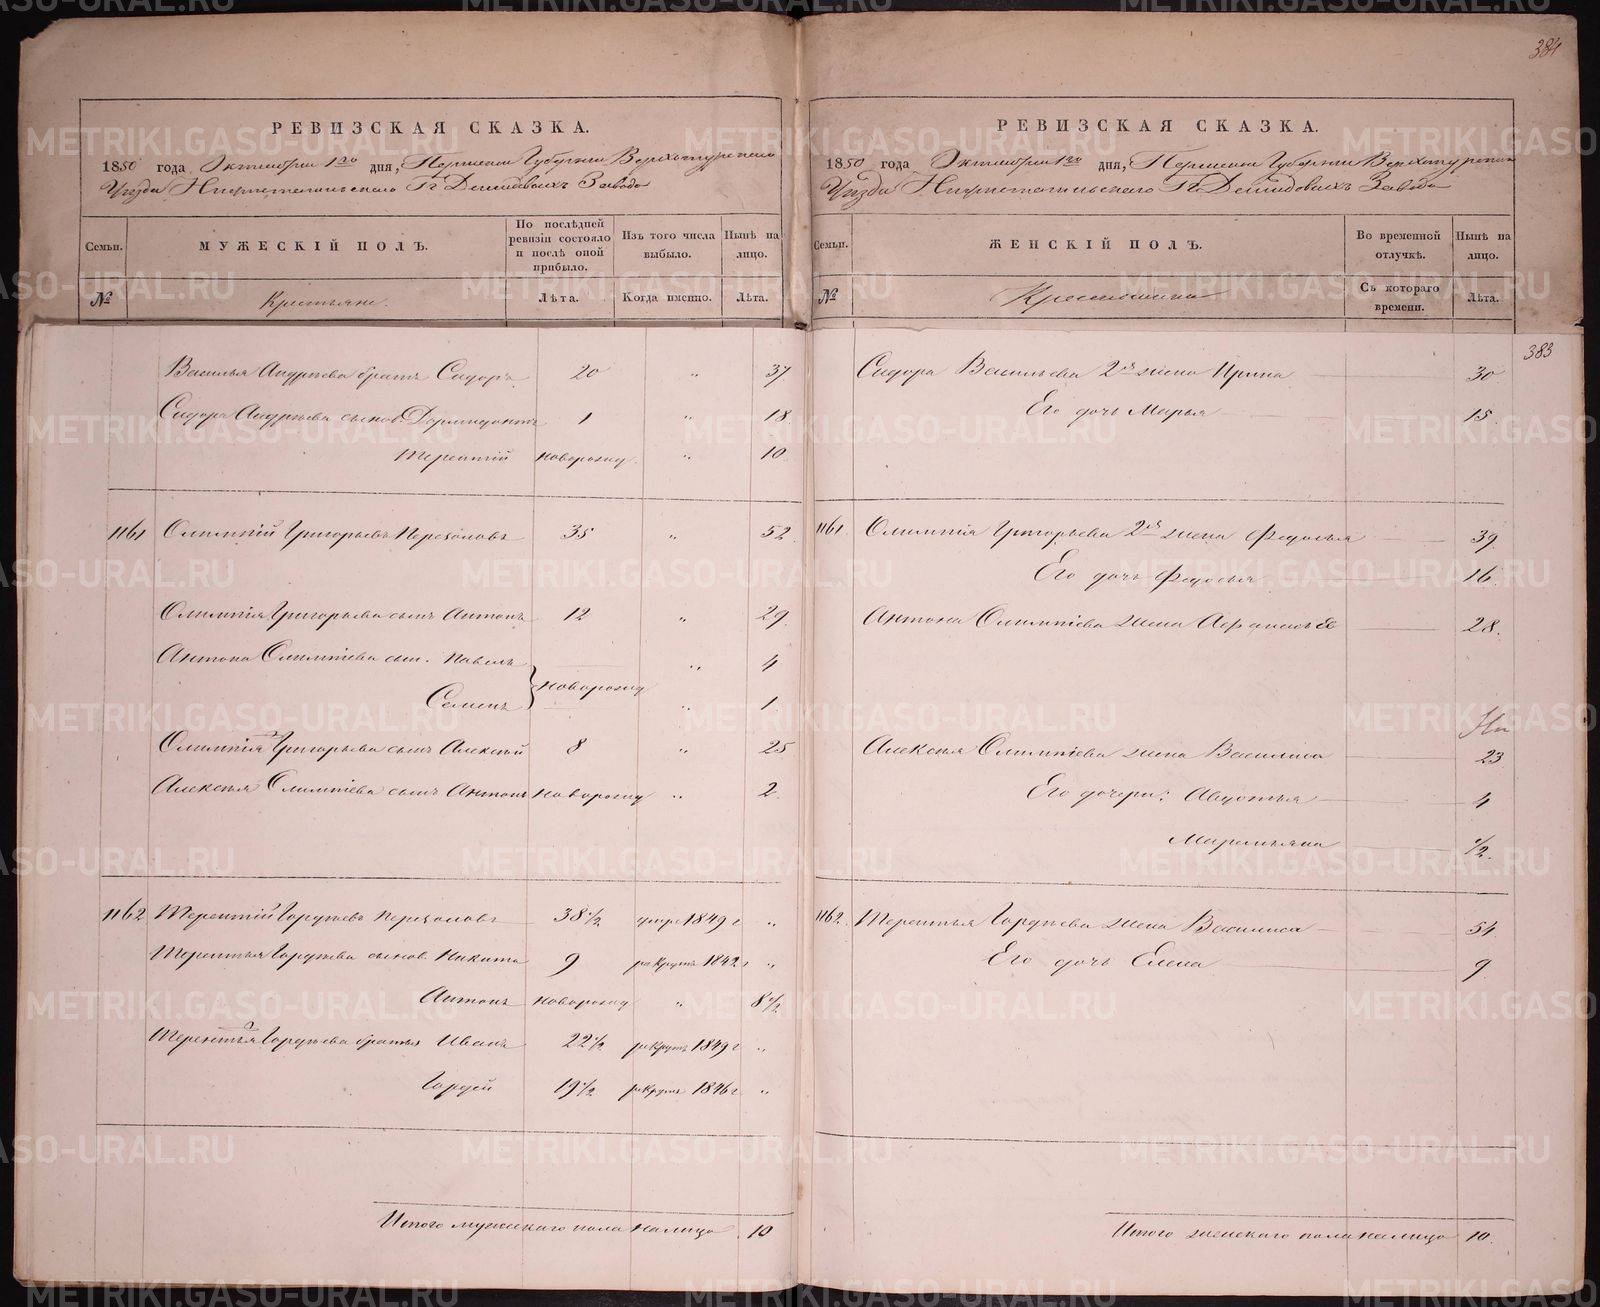 384
РЕВИЗСКАЯ СКАЗКА.
1850 года Октября 1го дня, Пермской Губернии Верхотурскаго
Уѣзда Нижнетагильскаго Гг Демидовыхъ Завода
Семьи.
МУЖЕСКІЙ ПОЛЪ.
По послѣдней ревизіи состояло и послѣ оной прибыло.
Изъ того числа выбыло.
Нынѣ на лицо.
№
Крестьяне.
Лѣта.
Когда именно.
Лѣта.
Василья Андреева братъ Сидоръ 20 " 37
Сидора Андреева сынов. Дормидонтъ 1 " 18.
Терентій новорожд. " 10
1161 Олимпій Григорьевъ 35 " 52
Олимпія Григорьева сынъ Антонъ 12 " 29.
Антона Олимпіева сын. Павелъ " 4
новорожд
Семенъ " 1
Олимпія Григорьева сынъ Алексѣй 8 " 25
Алексѣя Олимпіева сынъ Антонъ новорожд " 2.
1162 Терентій Гордѣевъ 38 1/2 умре 1849 г "
Терентья Гордѣева сынов. Никита 9 рекрутъ 1842 г "
Антонъ новорожд " 8 1/2
Терентья Гордѣева братья Иванъ 22 1/2 рекрутъ 1849 г "
Гордей 19 1/2 рекрутъ 1846 г "
Итого мужескаго пола налицо 10
РЕВИЗСКАЯ СКАЗКА.
1850 года Октября 1го дня, Пермской Губерніи Верхотурскаго
Уѣзда Нижнетагильскаго Гг Демидовыхъ Завода
Семьи.
ЖЕНСКІЙ ПОЛЪ.
Во временной отлучкѣ.
Нынѣ на лицо.
№
Съ котораго времени.
Лѣта.
383
Сидора Васильева 2я жена Ирина 30
Его дочь Марья 15.
1161. Олимпія Григорьева 2я жена Федосья 39
Его дочь Федосья 16
Антона Олимпіева жена 28.
Алексѣя Олимпіева жена Василиса 23
Его дочери: Авдотья 4
Маремьяна 1/2.
1162. Терентья Гордѣева жена Василиса 54
Его дочь Елена 9
Итого женскаго пола налицо 10.
METRIKI.GASO-URAL.RU